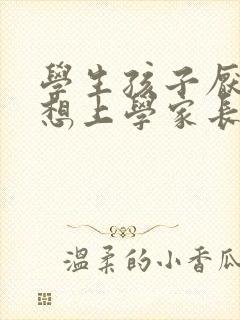 學生孩子厭
想上學家長
溫柔的小香瓜